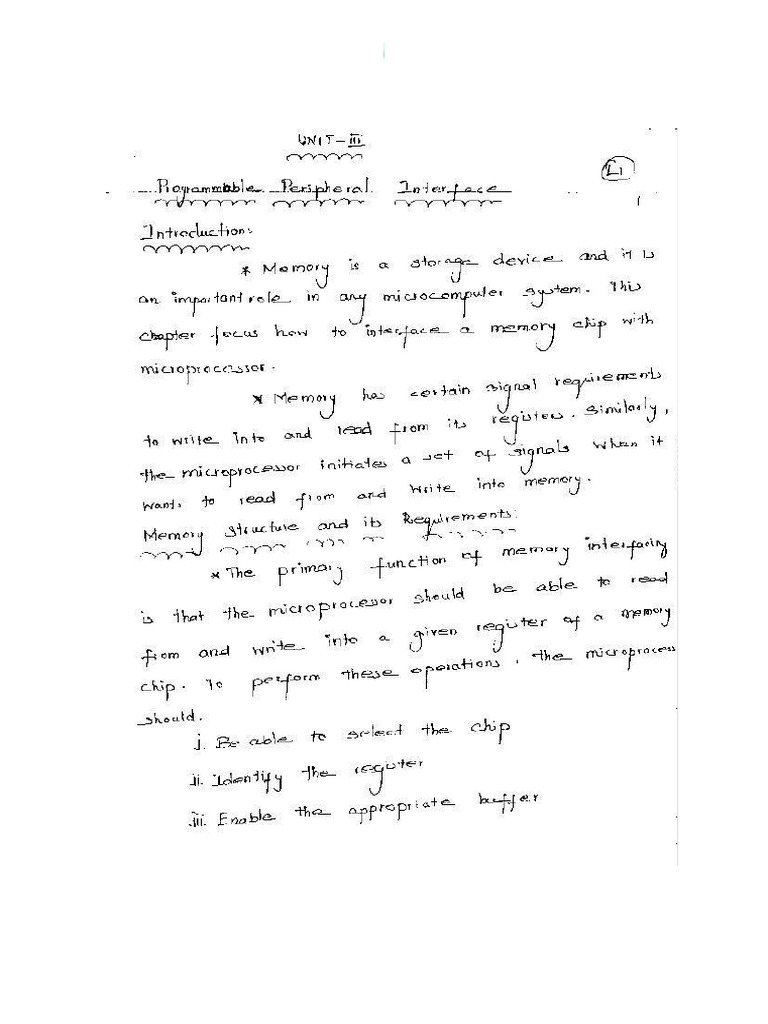 UNIT-III
L1
Programmable Peripheral Interface
Introduction:
* Memory is a storage device and it is
an important role in any microcomputer system. This
chapter focus how to interface a memory chip with
microprocessor.
* Memory has certain signal requirements
to write into and read from its registers. Similarly,
the microprocessor initiates a set of signals when it
wants to read from and write into memory.
Memory structure and its Requirements:
* The primary function of memory interfacing
is that the microprocessor should be able to read
from and write into a given register of a memory
chip. To perform these operations, the microprocess
should.
i. Be able to select the chip
ii. Identify the register
iii. Enable the appropriate buffer